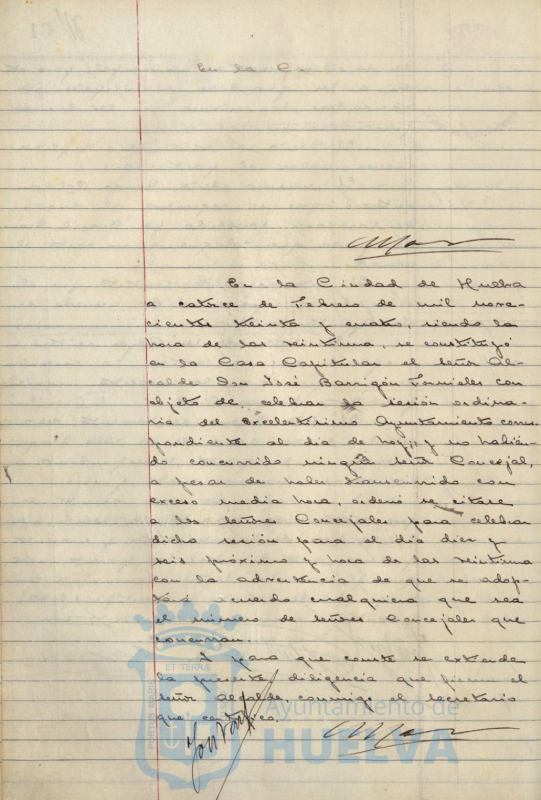 En la C
En la Ciudad de Huelva
a catorce de Febrero de mil nove-
cientos treinta y cuatro, siendo la
hora de las veintiuna, se constituyó
en la Casa Capitular el señor Al-
calde Don José Barrigón Fornieles con
objeto de celebrar la sesión ordina-
ria del Excelentísimo Ayuntamiento corres-
pondiente al dia de hoy, y no habien-
do concurrido ningún señor Concejal,
a pesar de haber transcurrido con
exceso media hora, ordenó se citase
a los señores Concejales para celebrar
dicha sesión para el dia diez y
seis próximo y hora de las veintiuna
con la advertencia de que se adop-
tará acuerdo cualquiera que sea
el número de señores Concejales que
concurran.
Y para que conste se extiende
la presente diligencia que firma el
señor Alcalde conmigo el secretario
que certifico.
PORTUS MARIS ET TERRÆ
Ayuntamiento de
HUELVA